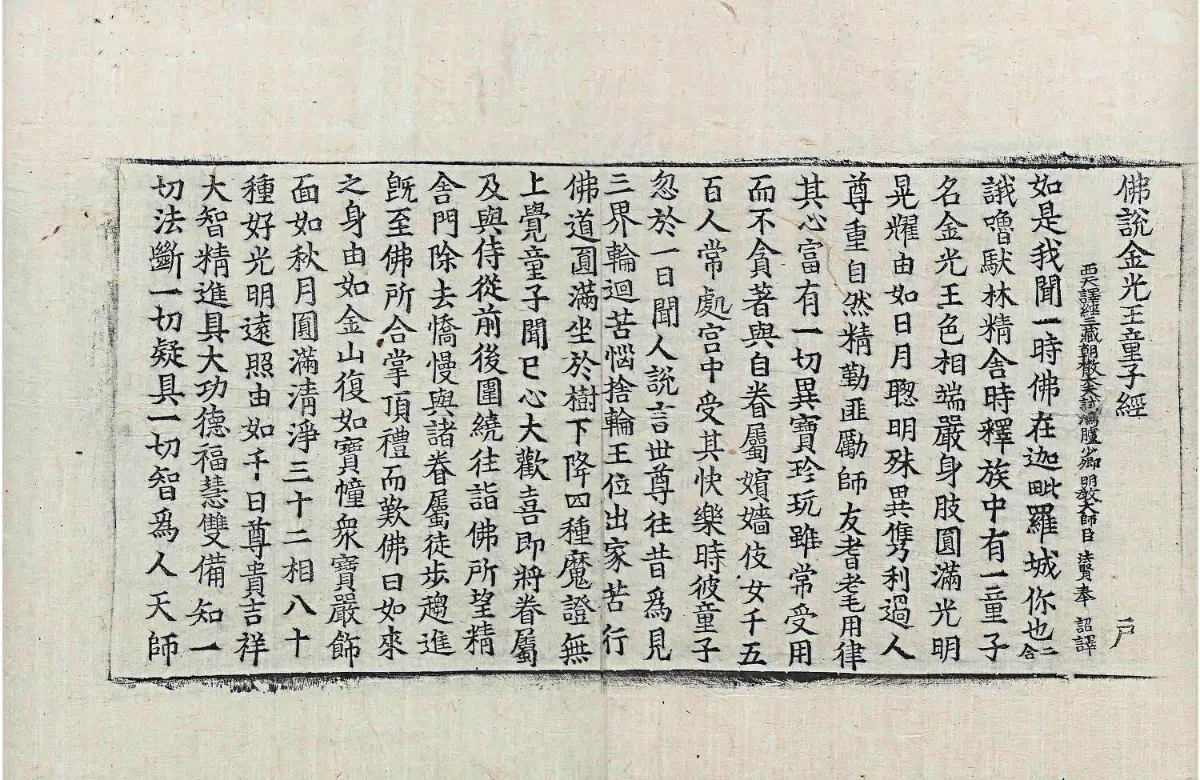 佛說金光王童子經 戸
西天譯經三藏朝散大夫試鴻臚少卿明教大師臣法賢奉 詔譯
如是我聞一時佛在迦毗羅城你也二合
誐嚕䭾林精舎時釋族中有一童子
名金光王色相端嚴身肢圓滿光明
晃耀由如日月聦明殊異儁利過人
尊重自然精勤匪勵師友耆老毛用律
其心富有一切異寶珍玩雖常受用
而不貪著與自眷屬嬪嬙伎女千五
百人常處宫中受其快樂時彼童子
忽於一日聞人說言世尊往昔爲見
三界輪迴苦惱捨輪王位出家苦行
佛道圓滿坐於樹下降四種魔證無
上覺童子聞已心大歡喜即將眷屬
及與侍從前後圍繞往詣佛所望精
舎門除去憍慢與諸眷屬徒步趨進
旣至佛所合掌頂禮而歎佛曰如來
之身由如金山復如寶幢衆寶嚴飾
面如秋月圓滿清淨三十二相八十
種好光明遠照由如千日尊貴吉祥
大智精進具大功德福慧雙備知一
切法斷一切疑具一切智爲人天師